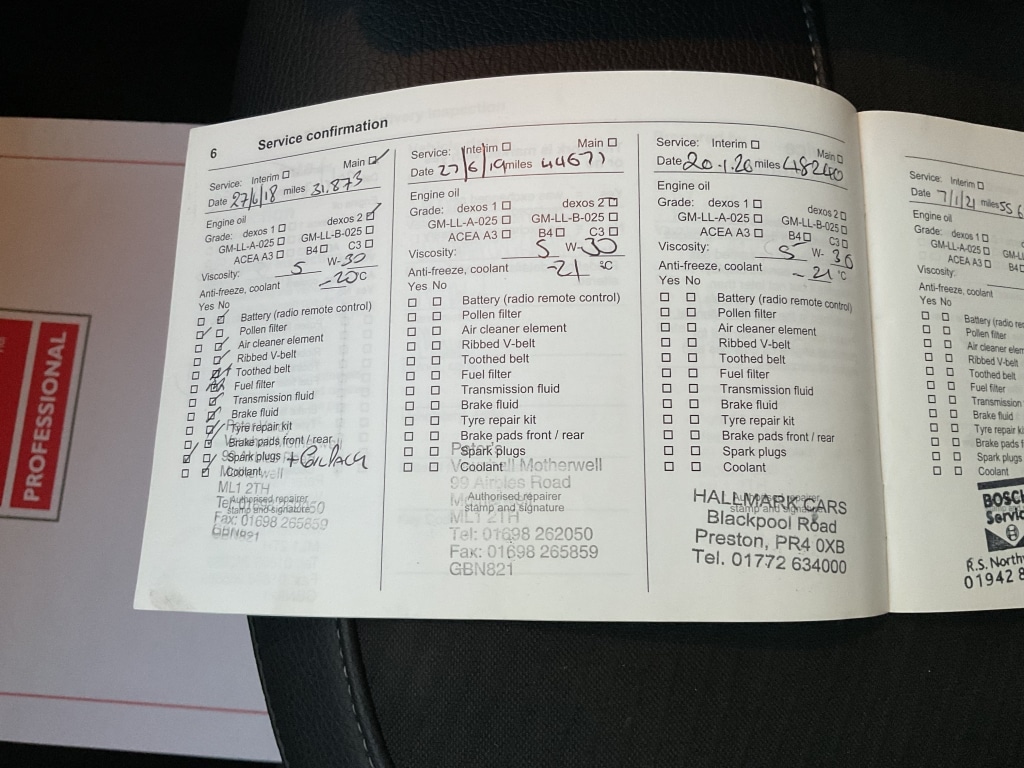 6 Service confirmation
Service: Interim ☐ Main ☑
Date 27/6/18 miles 31,873
Engine oil
Grade: dexos 1 ☐ dexos 2 ☑
GM-LL-A-025 ☐ GM-LL-B-025 ☐
ACEA A3 ☐ B4 ☐ C3 ☐
Viscosity: 5 W-30
Anti-freeze, coolant -20°C
Yes No
Battery (radio remote control)
Pollen filter
Air cleaner element
Ribbed V-belt
Toothed belt
Fuel filter
Transmission fluid
Brake fluid
Tyre repair kit
Brake pads front / rear
Spark plugs
Coolant
ML1 2TH
Authorised repairer
stamp and signature
Fax: 01698 265859
GBN821
Service: Interim ☐ Main ☐
Date 27/6/19 miles 44677
Engine oil
Grade: dexos 1 ☐ dexos 2 ☐
GM-LL-A-025 ☐ GM-LL-B-025 ☐
ACEA A3 ☐ B4 ☐ C3 ☐
Viscosity: 5 W-30
Anti-freeze, coolant -21 °C
Yes No
Battery (radio remote control)
Pollen filter
Air cleaner element
Ribbed V-belt
Toothed belt
Fuel filter
Transmission fluid
Brake fluid
Tyre repair kit
Brake pads front / rear
Spark plugs
Coolant
Motherwell
99 Airbles Road
Authorised repairer
stamp and signature
ML1 2TH
Tel: 01698 262050
Fax: 01698 265859
GBN821
Service: Interim ☐ Main ☐
Date 20.1.20 miles 48240
Engine oil
Grade: dexos 1 ☐ dexos 2 ☐
GM-LL-A-025 ☐ GM-LL-B-025 ☐
ACEA A3 ☐ B4 ☐ C3 ☐
Viscosity: 5 W-30
Anti-freeze, coolant -21 °C
Yes No
Battery (radio remote control)
Pollen filter
Air cleaner element
Ribbed V-belt
Toothed belt
Fuel filter
Transmission fluid
Brake fluid
Tyre repair kit
Brake pads front / rear
Spark plugs
Coolant
HALLMARK CARS
Blackpool Road
Preston, PR4 0XB
Tel. 01772 634000
Service: Interim ☐
Date 7/1/21 miles 55
Engine oil
Grade: dexos 1 ☐
GM-LL-A-025 ☐
ACEA A3 ☐ B4
Viscosity:
Anti-freeze, coolant
Yes No
Battery (radio
Pollen filter
Air cleaner
Ribbed V-belt
Toothed belt
Fuel filter
Transmission
Brake fluid
Tyre repair
Brake pads
Spark plugs
Coolant
BOSCH
R.S. North
01942 8
PROFESSIONAL